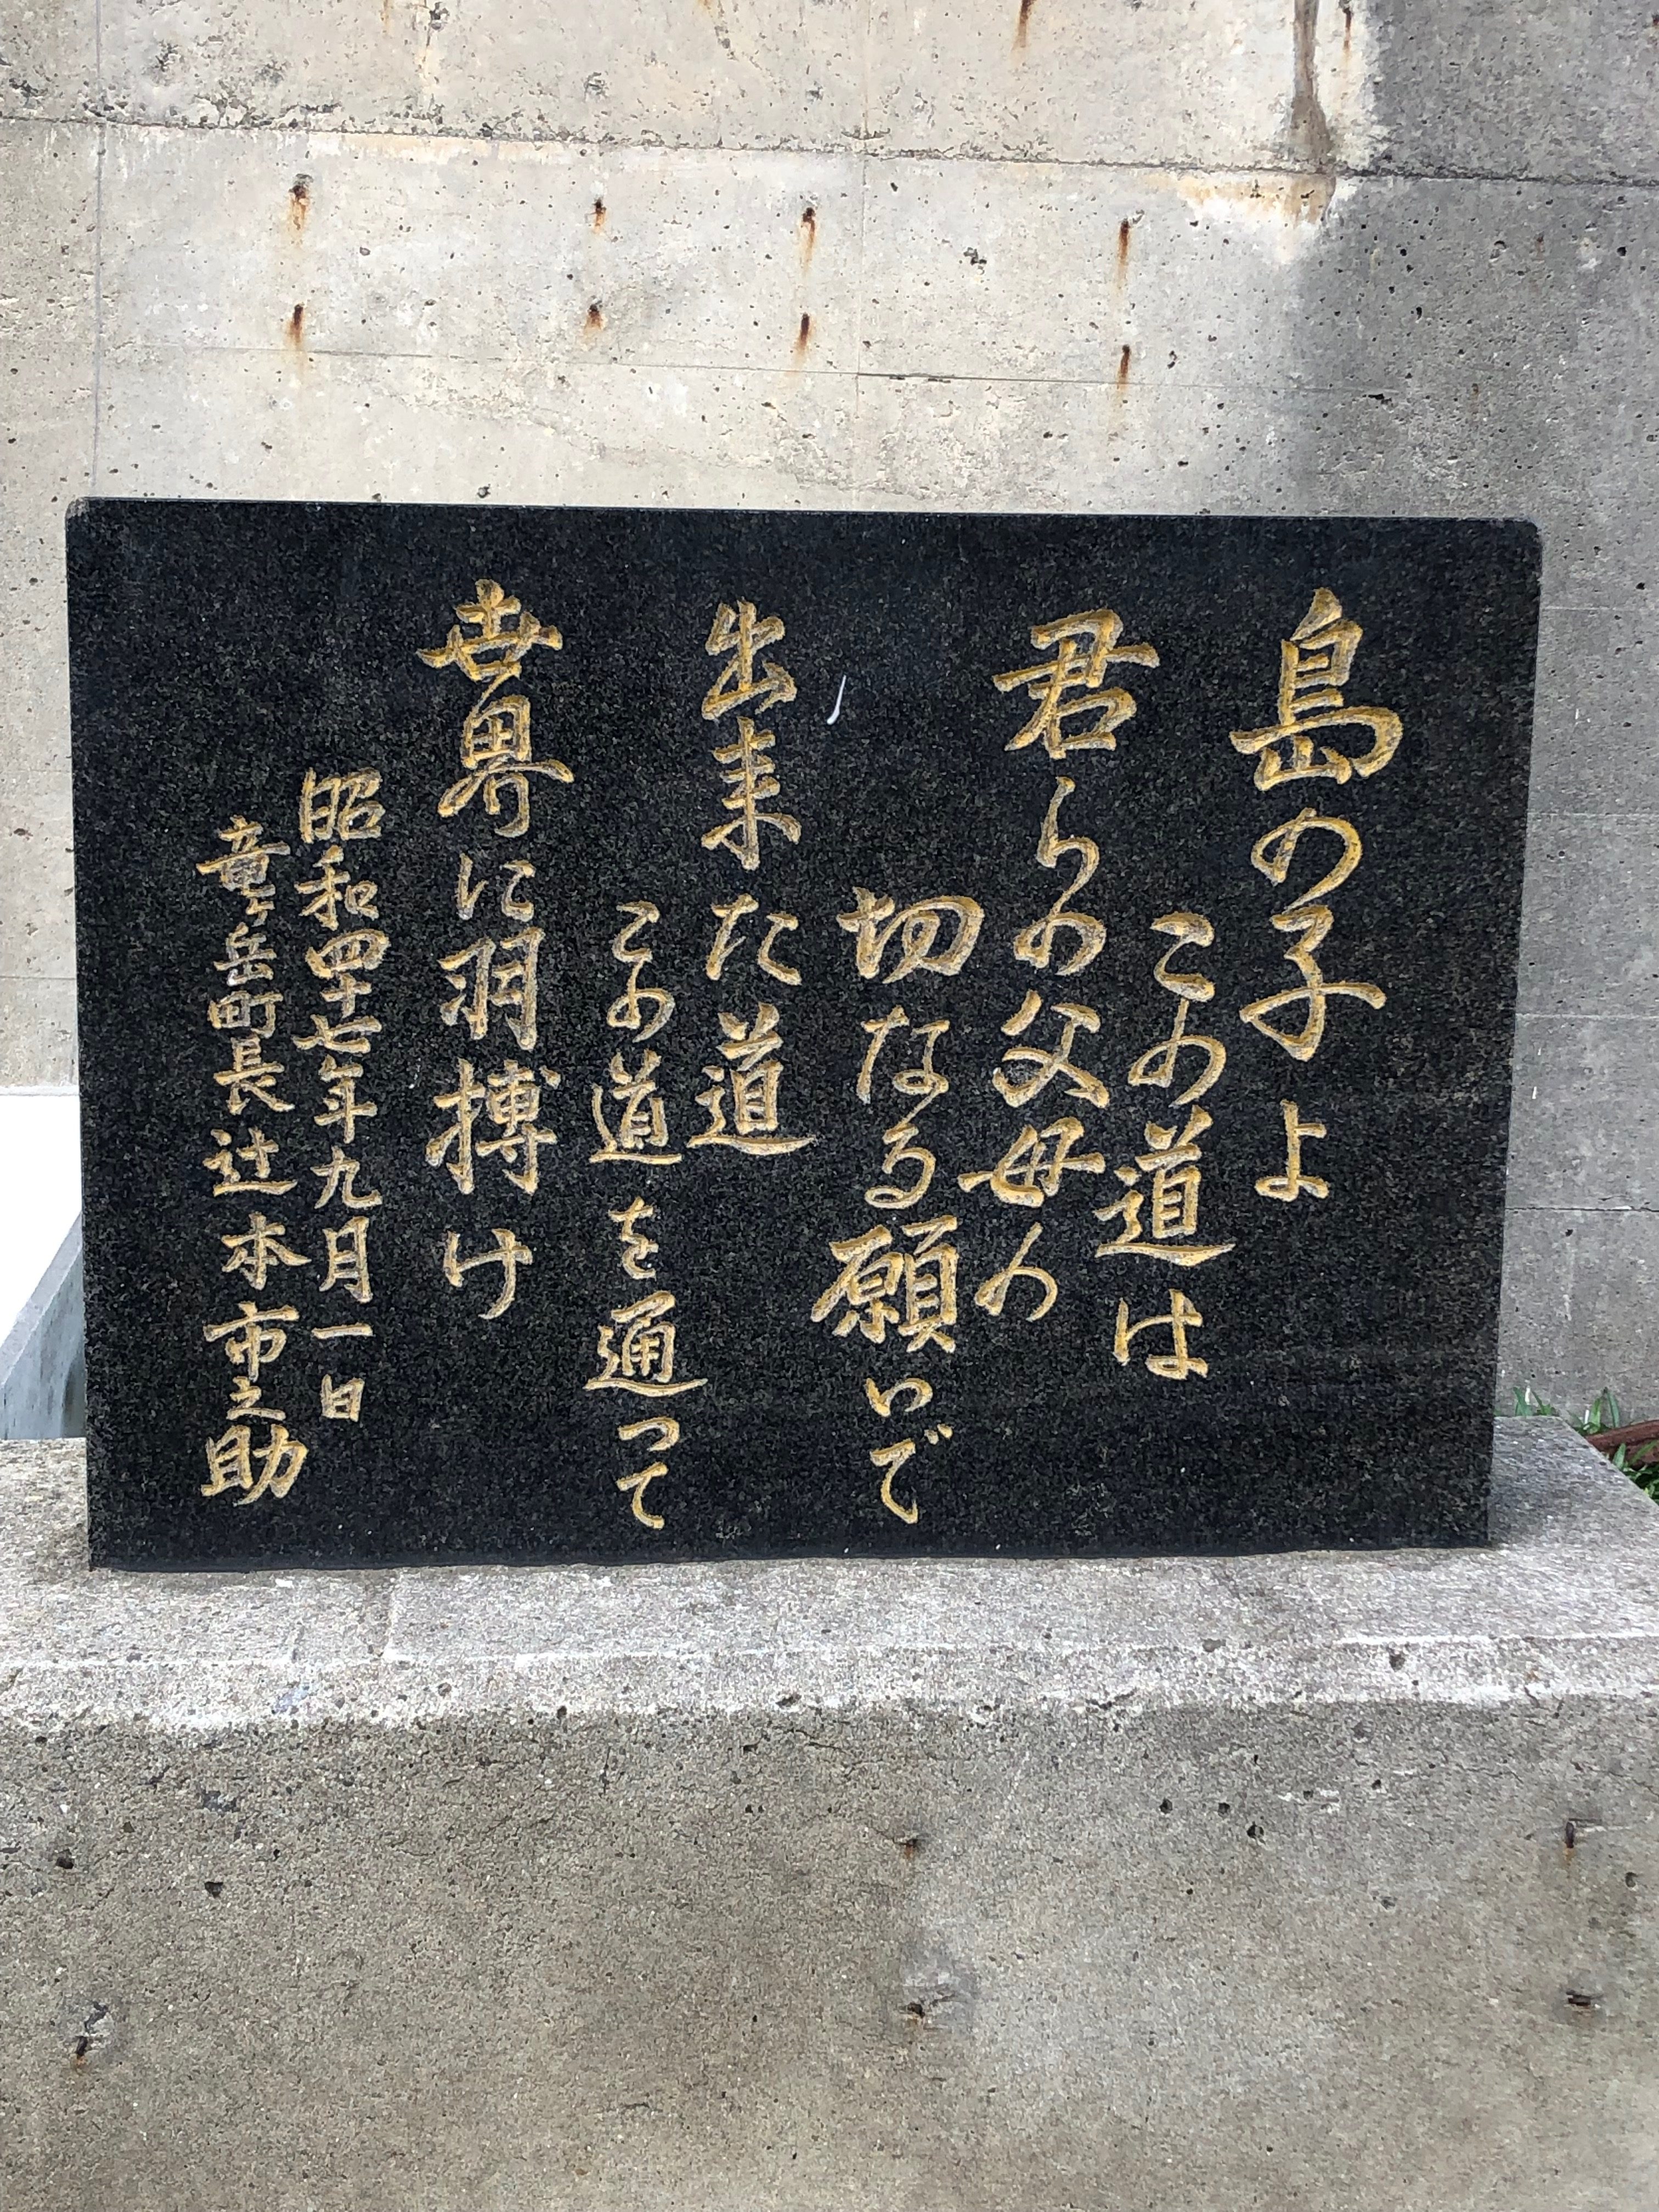 島の子よ
この道は
君らの父母の
切なる願いで
出来た道
この道を通って
世界に羽搏け
昭和四十七年九月一日
竜ヶ岳町長辻本市之助